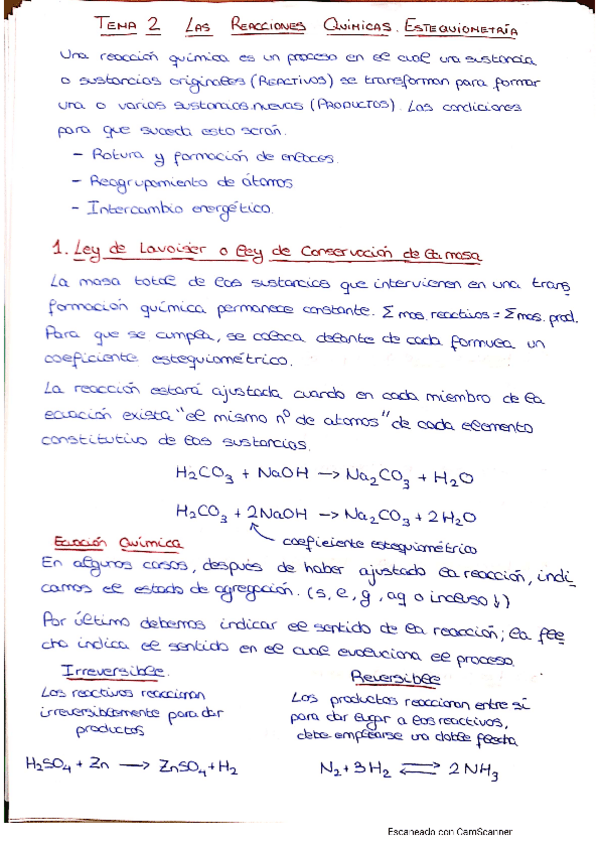 TEMA 2 LAS REACCIONES QUIMICAS. ESTEQUIOMETRÍA
Una reacción química es un proceso en el cual una sustancia
o sustancias originales (REACTIVOS) se transforman para formar
una o varias sustancias nuevas (PRODUCTOS). Las condiciones
para que suceda esto serán.
- Rotura y formación de enlaces.
- Reagrupamiento de átomos
- Intercambio energético.
1. Ley de Lavoiser o Ley de Conservación de la masa
La masa total de las sustancias que intervienen en una trans
formación química permanece constante. Σ mas. reactivos = Σ mas. prod.
Para que se cumpla, se coloca delante de cada formula un
coeficiente estequiométrico.
La reacción estará ajustada cuando en cada miembro de la
ecuación exista "el mismo nº de atomos" de cada elemento
constitutivo de las sustancias.
H₂CO₃ + NaOH → Na₂CO₃ + H₂O
H₂CO₃ + 2NaOH → Na₂CO₃ + 2H₂O
coeficiente estequiométrico
Ecuación Química
En algunos casos, después de haber ajustado la reacción, indi
camos el estado de agregación. (s, l, g, aq o incluso ↓)
Por último debemos indicar el sentido de la reacción; la fle
cha indica el sentido en el cual evoluciona el proceso.
Irreversible.
Los reactivos reaccionan
irreversiblemente para dar
productos
H₂SO₄ + Zn → ZnSO₄ + H₂
Reversible
Los productos reaccionan entre sí
para dar lugar a los reactivos,
debe emplearse una doble flecha
N₂ + 3H₂ ⇌ 2NH₃
Escaneado con CamScanner